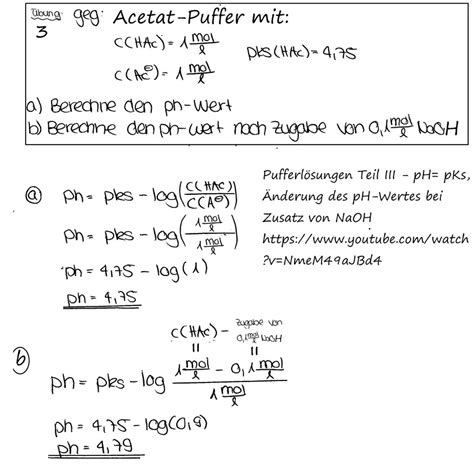 Übung 3
geg: Acetat-Puffer mit:
c(HAc) = 1 mol/l
pks(HAc) = 4,75
c(Ac⊖) = 1 mol/l
a) Berechne den ph-Wert
b) Berechne den ph-Wert nach Zugabe von 0,1 mol/l NaOH
Pufferlösungen Teil III - pH= pKs,
Änderung des pH-Wertes bei
Zusatz von NaOH
https://www.youtube.com/watch
?v=NmeM49aJBd4
a) ph = pks - log(c(HAc)/c(A⊖))
ph = pks - log(1 mol/l / 1 mol/l)
ph = 4,75 - log(1)
ph = 4,75
c(HAc) - Zugabe von 0,1 mol/l NaOH
b) ph = pks - log (1 mol/l - 0,1 mol/l) / (1 mol/l)
ph = 4,75 - log(0,9)
ph = 4,79